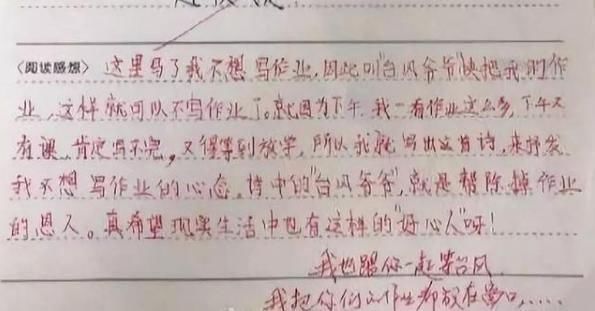 〈阅读感想〉这里写了我不想写作业,因此叫"台风爷爷"快把我的作
业,这样就可以不写作业了,就因为下午我一看作业这么多,下午又
有课,肯定写不完,又得等到放学,所以我就写出这首诗,来抒发
我不想写作业的心态,诗中的"台风爷爷",就是帮除掉作业
的恩人。真希望现实生活中也有这样的"好心人"呀!
我也跟你一起等台风
我把你们的作业都放在窗口,.....